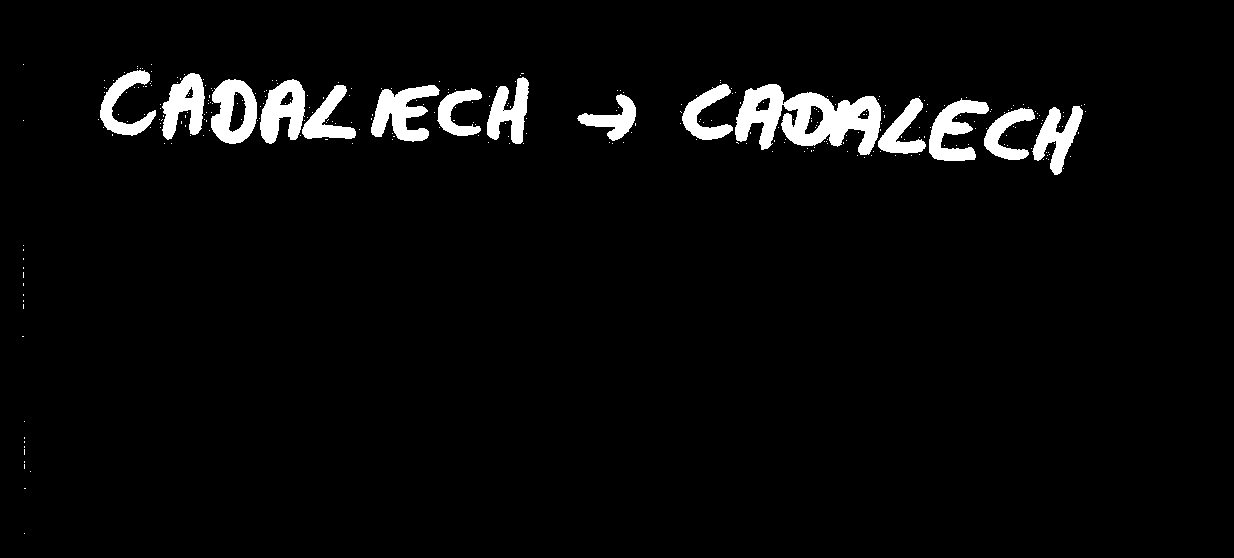 CADALIECH → CADALECH